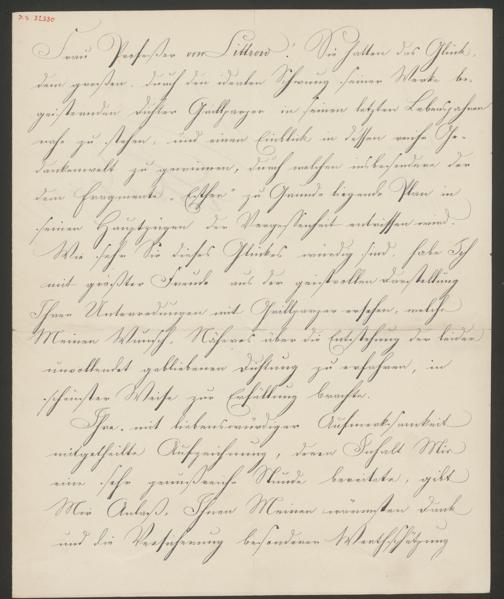 J.N. 32330
Frau Professor von Littrow! Sie hatten das Glück,
dem großen, durch den idealen Schwung seiner Werke be-
geisternden Dichter Grillparzer in seinen letzten Lebensjahren
nahe zu stehen, und einen Einblick in dessen reiche Ge-
dankenwelt zu gewinnen, durch welchen insbesondere der
dem Fragmente „Esther“ zu Grunde liegende Plan in
seinen Hauptzügen der Vergessenheit entrissen wird.
Wie sehr Sie dieses Glückes würdig sind, habe Ich
mit größter Freude aus der geistvollen Darstellung
Ihrer Unterredungen mit Grillparzer ersehen, welche
Meinen Wunsch, Näheres über die Entstehung der leider
unvollendet gebliebenen Dichtung zu erfahren, in
schönster Weise zur Erfüllung brachte.
Ihre, mit liebenswürdiger Aufmerksamkeit
mitgetheilte Aufzeichnung, deren Inhalt Mir
eine sehr genußreiche Stunde bereitete, gibt
Mir Anlaß, Ihnen Meinen wärmsten Dank
und die Versicherung besonderer Werthschätzung